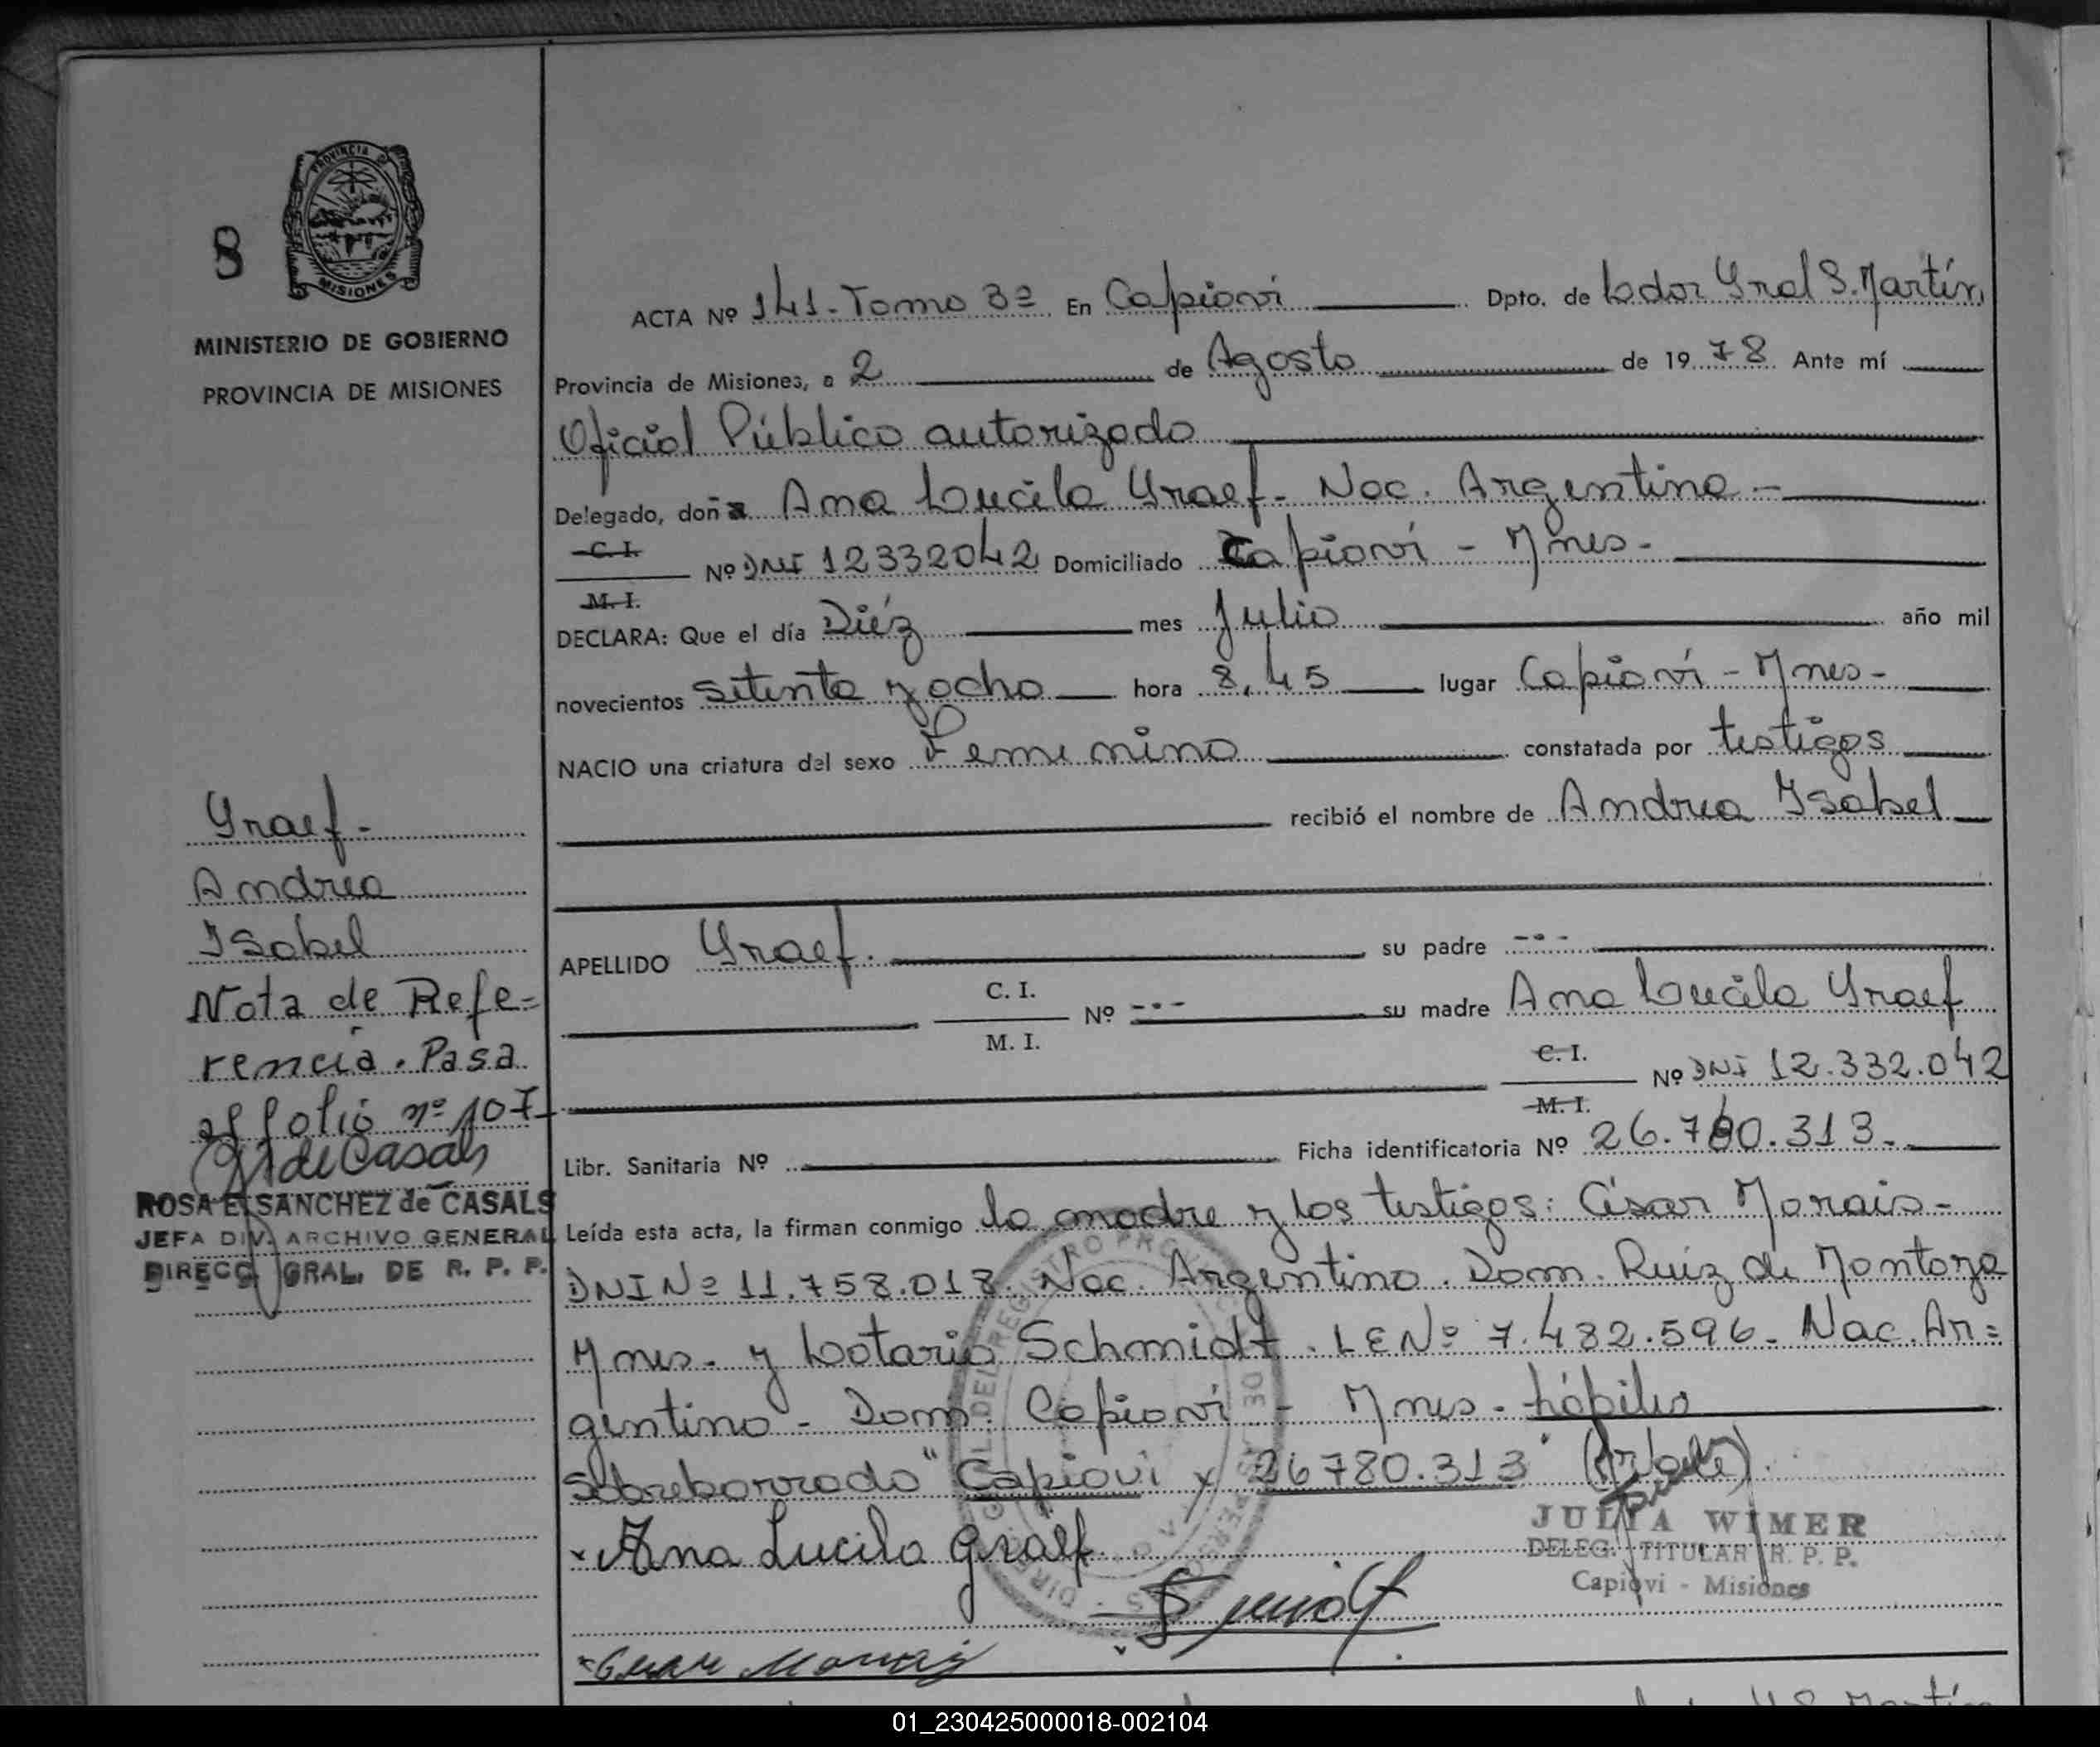 PROVINCIA DE
MISIONES
8
MINISTERIO DE GOBIERNO
PROVINCIA DE MISIONES
ACTA Nº 141 - Tomo 3º En Capiovi Dpto. de Ldor Gral S. Martín,
Provincia de Misiones, a 2 de Agosto de 19 78 Ante mí
Oficial Público autorizado
Delegado, doña Ana Lucila Graef - Nac. Argentina -
C. I.
Nº DNI 12332042 Domiciliado Capioví - Mnes -
M. I.
DECLARA: Que el día Diéz mes Julio año mil
novecientos setenta y ocho hora 8,45 lugar Capioví - Mnes -
NACIO una criatura del sexo Femenino constatada por testigos
recibió el nombre de Andrea Isabel
APELLIDO Graef. su padre ---
C. I.
Nº --- su madre Ana Lucila Graef
M. I.
C. I.
Nº DNI 12.332.042
M. I.
Libr. Sanitaria Nº Ficha identificatoria Nº 26.780.313.-
Leída esta acta, la firman conmigo la madre y los testigos: César Morais -
DNI Nº 11.758.018. Nac. Argentino. Dom. Ruiz de Montoya
Mnes. y Lotario Schmidt. LE Nº 7.482.596 - Nac. Ar=
gentino - Dom. Capioví - Mnes - hábiles
Sobreborrado "Capiovi y 26780.313"
Ana Lucila Graef
JULIA WIMER
DELEG. TITULAR R. P. P.
Capiovi - Misiones
Graef -
Andrea
Isabel
Nota de Refe=
rencia. Pasa
al folio nº 107
ROSA E. SANCHEZ de CASALS
JEFA DIV. ARCHIVO GENERAL
DIRECC. GRAL. DE R. P. P.
01_230425000018-002104